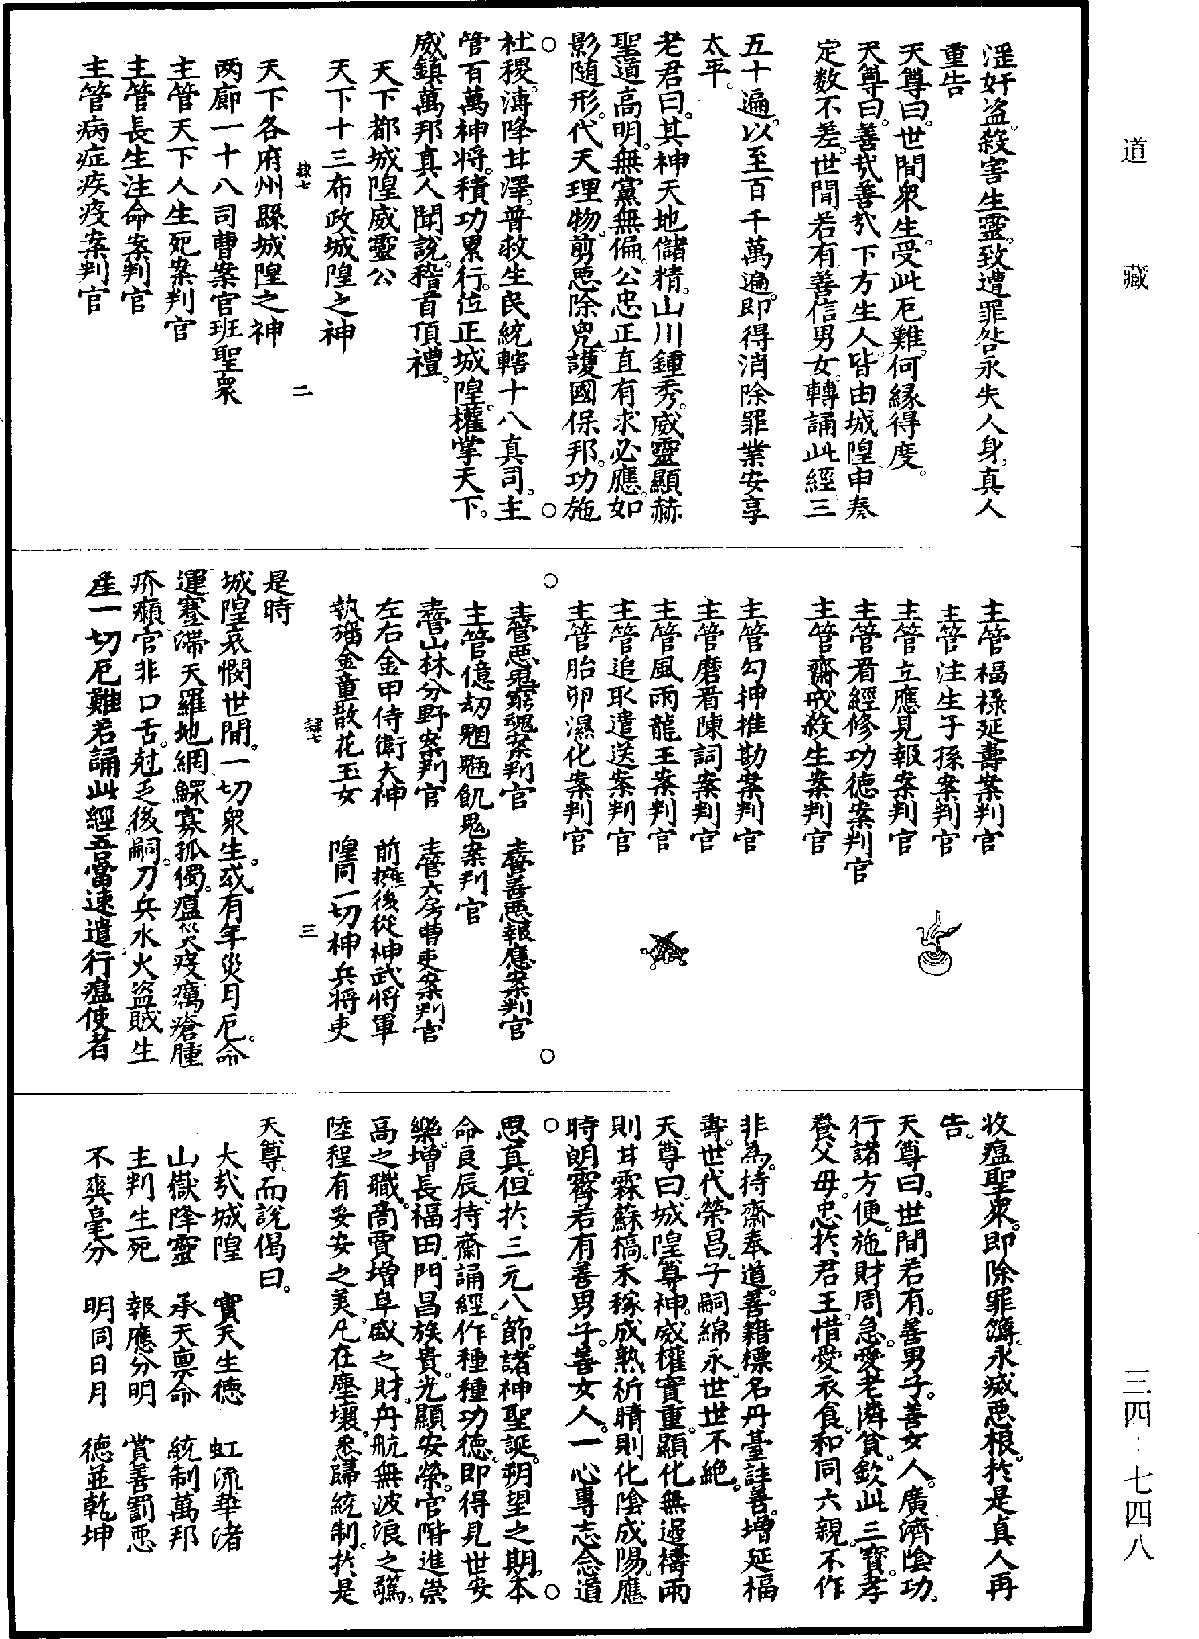 道藏
三四·七四八
淫奸盗殺害生靈致遭罪咎永失人身真人
重告
天尊曰世間衆生受此厄難何縁得度
天尊曰善哉善哉下方生人皆由城隍申奏
定数不差世間若有善信男女轉誦此經三
五十遍以至百千萬遍即得消除罪業安享
太平
老君曰其神天地儲精山川鍾秀威靈顯赫
聖道高明無黨無偏公忠正直有求必應如
影随形代天理物剪惡除兇護國保邦功施
社稷溥降甘澤普救生民統轄十八真司主
管百萬神将積功累行位正城隍權掌天下
威鎮萬邦真人聞說稽首頂禮
天下都城隍威靈公
天下十三布政城隍之神
天下各府州縣城隍之神
两廊一十八司曹案官班聖衆
主管天下人生死案判官
主管長生注命案判官
主管病症疾疫案判官
二
主管福禄延壽案判官
主管注生子孫案判官
主管立應見報案判官
主管看經修功德案判官
主管齋戒殺生案判官
主管勾押推勘案判官
主管磨看陳詞案判官
主管風雨龍王案判官
主管追取遣送案判官
主管胎卵濕化案判官
主管惡鬼窮魂案判官　主管善惡報應案判官
主管億劫魍魎飢鬼案判官
主管山林分野案判官　主管六房曹吏案判官
左右金甲侍衛大神　前擁後從神武将軍
執旛金童散花玉女　隍司一切神兵将吏
三
是時
城隍哀憫世間一切衆生或有年災月厄命
運蹇滯天羅地網鰥寡孤獨瘟災疫癘瘡腫
疥癩官非口舌尅乏後嗣刀兵水火盜賊生
産一切厄難若誦此經吾當速遣行瘟使者
收瘟聖衆即除罪簿永滅惡根於是真人再
告
天尊曰世間若有善男子善女人廣濟陰功
行諸方便施財周急愛老濟貧欽此三寶孝
養父母忠於君王惜愛衣食和同六親不作
非為持齋奉道善籍標名丹臺註善增延福
壽世代榮昌子嗣綿永世世不絶
天尊曰城隍尊神威權實重顯化無邊禱雨
則甘霖蘇槁禾稼成熟祈晴則化陰成陽應
時朗霽若有善男子善女人一心專志念道
思真但於三元八節諸神聖誕朔望之期本
命良辰持齋誦經作種種功德即得見世安
樂增長福田門昌族貴光顯安榮官階進崇
高之職商賈增阜盛之財舟航無波浪之驚
陸程有妥安之美凡在塵壤悉歸統制於是
天尊而說偈曰
大哉城隍　實天生德　虹流華渚
山嶽降靈　承天禀命　統制萬邦
主判生死　報應分明　賞善罰惡
不爽毫分　明同日月　德並乾坤